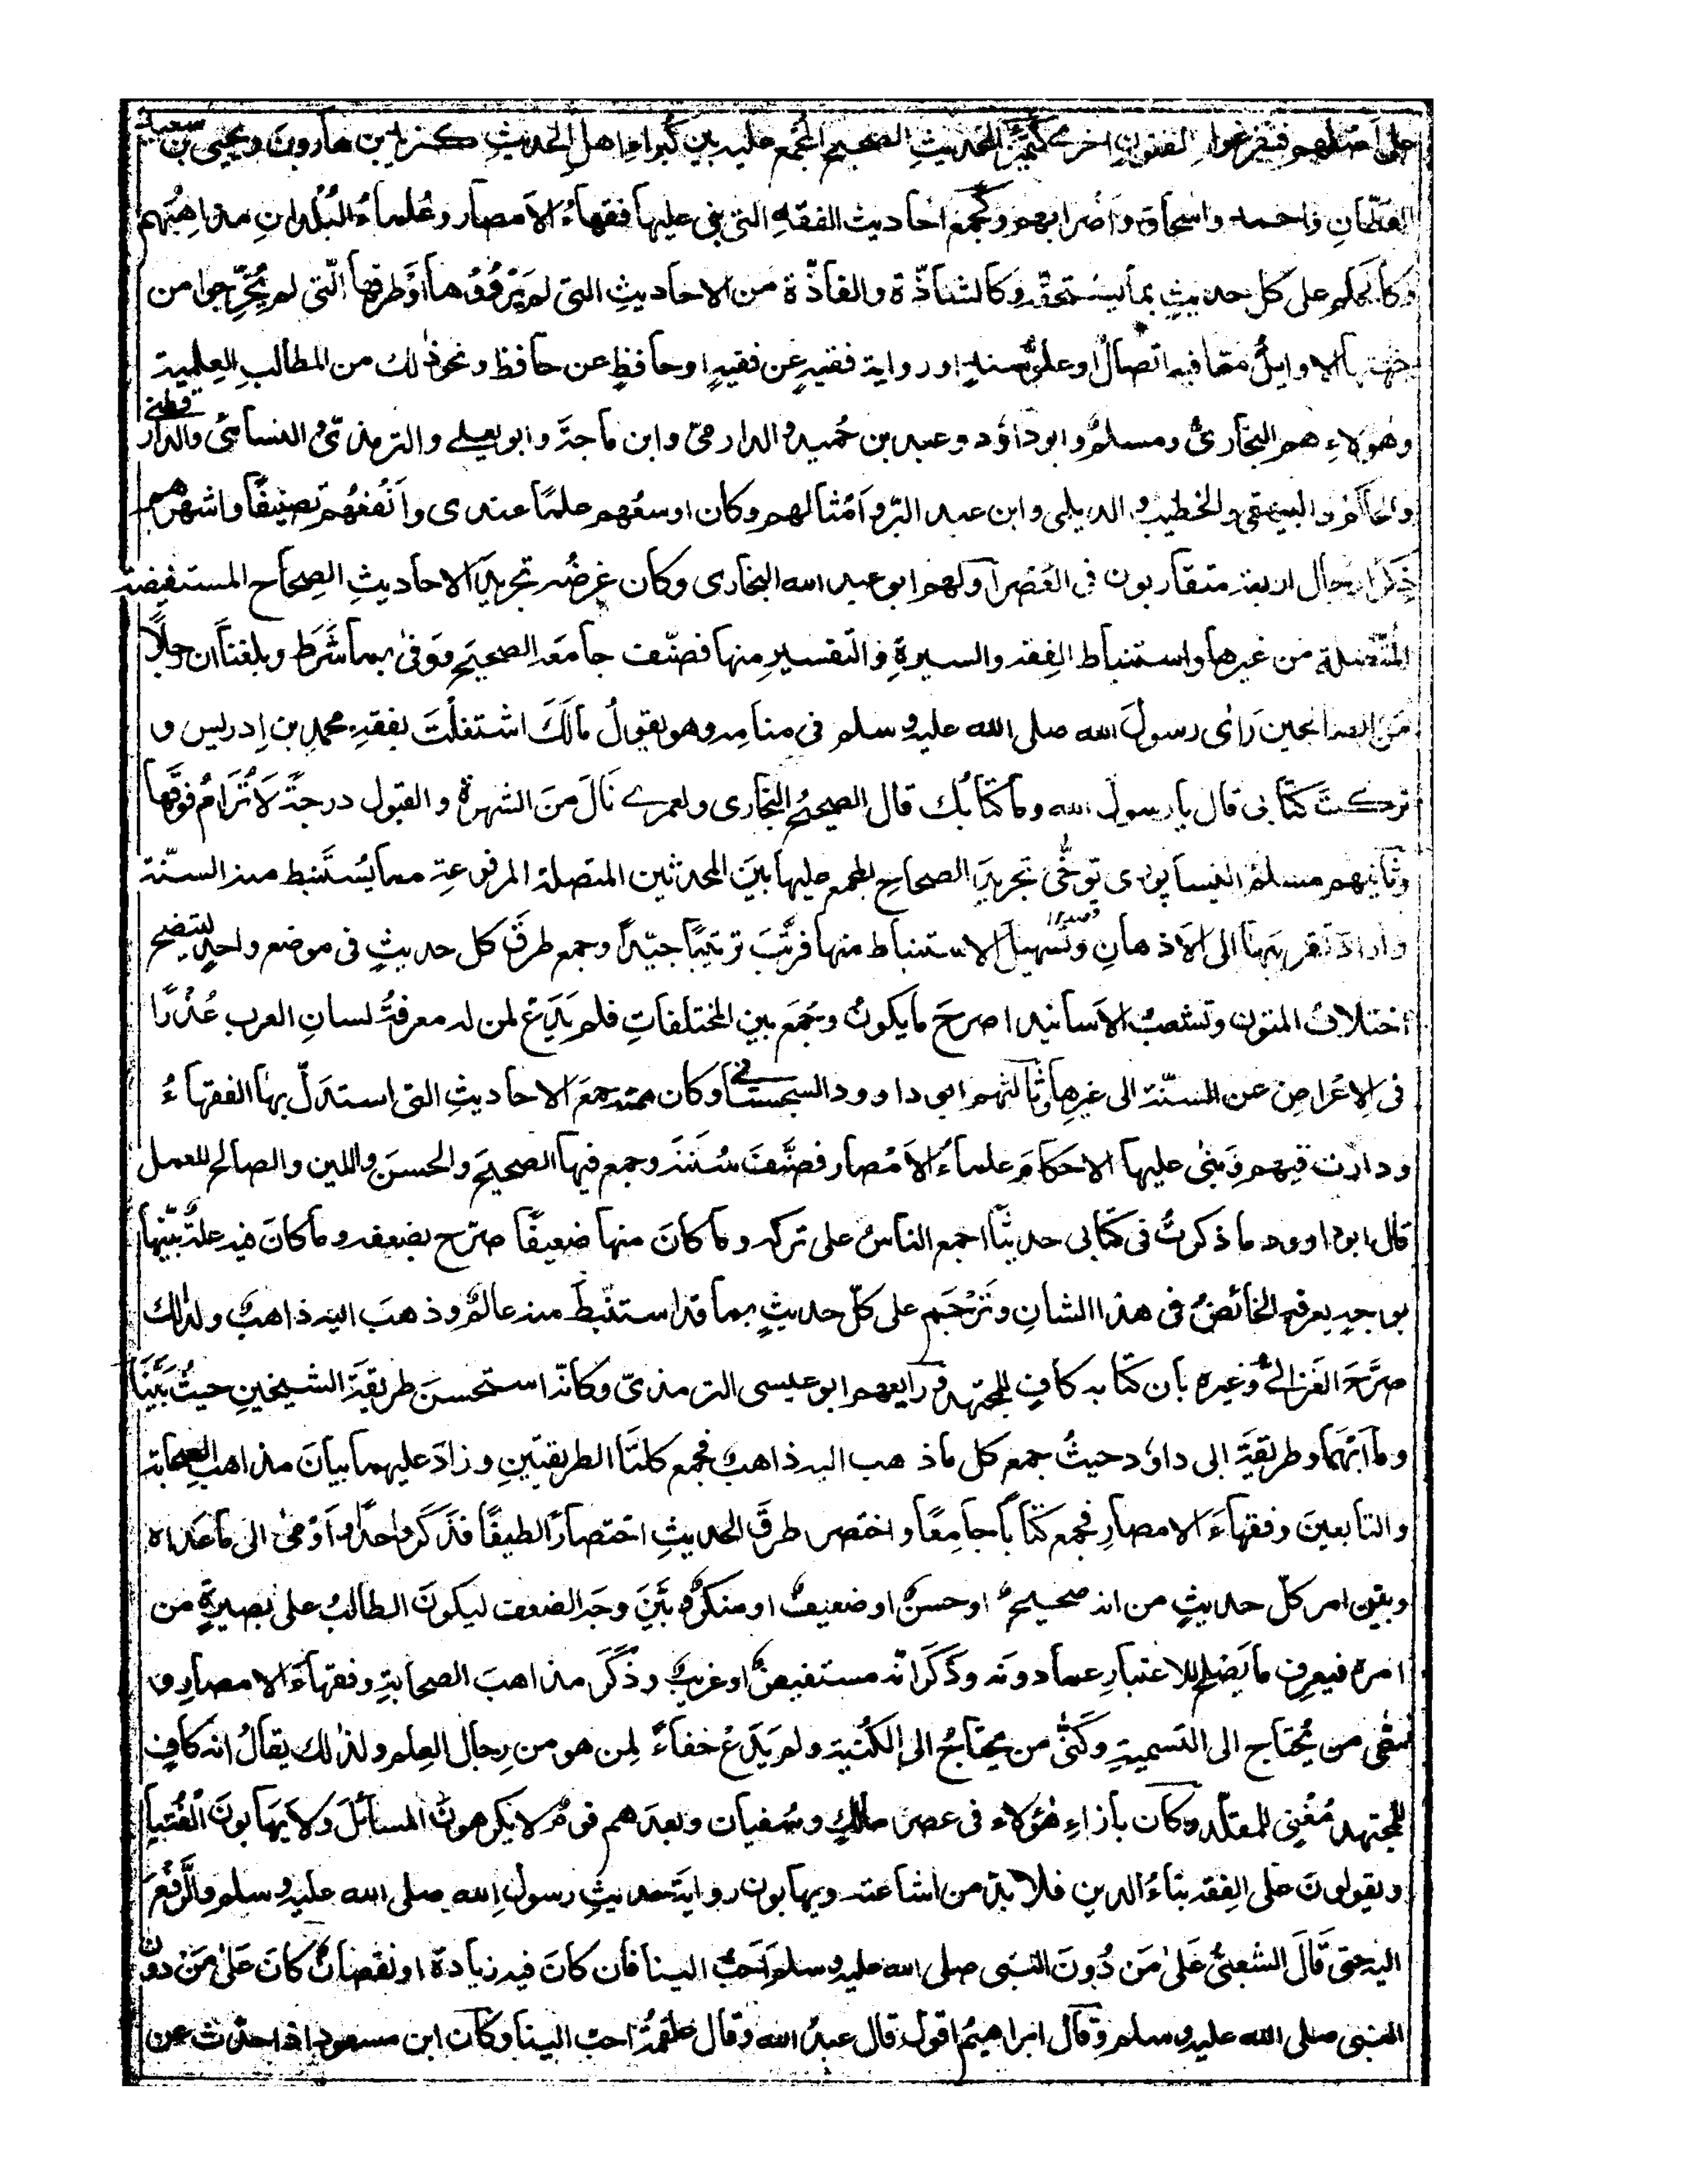 على أصلهم فتفرغوا لفنون اخرى كتمييز الحديثِ الصحيح المُجمع عليه بين كُبراءِ اهلِ الحديثِ كيزيد بن هارونَ ويحيى بن سعيد
القطّانِ واحمد واسحاق وأضرابهم وكجمع احاديث الفقهِ التى بنى عليها فقهاءُ الامصار وعُلماءُ البُلدانِ مذاهِبَهم
وكالحكم على كل حديثٍ بما يستحقّه وكالشاذّة والفاذّة من الاحاديثِ التى لم يَرْوُوْها أوْ طرقها الّتى لم يُخَرِّجوا من
جهتها الاوايلُ مما فيه اتصالٌ او علوُّ سندٍ او رواية فقيهٍ عن فقيهٍ او حافظٍ عن حافظ ونحو ذلك من المطالبِ العِلمِية
وهٰؤلاءِ هم البخارىُّ ومسلمٌ وابو داؤد وعبد بن حُميد والدارمىّ وابن ماجةَ وابو يعلے والترمذىّ والنسائىُّ والدارقطنے
والحاكمُ والبيهقى والخطيبُ والديلمى وابن عبد البرّ وأمْثالهم وكان اوسعُهم علمًا عندى وأنْفَعُهم تصنيفًا واشهرهم
ذِكرًا رجال اربعة متقاربون فى العَصْر اولهم ابو عبد الله البخارى وكان غرضُه تجريدَ الاحاديثِ الصِحاح المستفيضة
المُتّصلة من غيرها واستنباط الفِقه والسيرةِ والتفسيرِ منها فصنّف جامعَه الصحيحَ ووفٰى بما شَرَط وبلغنا ان رجلًا
من الصالحين رَاٰى رسولَ الله صلى الله عليه وسلم فى منامِه وهو يقولُ مالَكَ اشتغلْتَ بفقهِ محمدِ بن اِدريس و
تركتَ كتابى قال يا رسولَ الله وما كتابُك قال الصحيحُ البخارى ولعمرے نَالَ مِنَ الشهرةِ والقبول درجةً لَا تُرَامُ فوقَها
وثانيهم مسلمُ النيسابورى توخّى تجريدَ الصحاحِ المجمع عليها بينَ المحدثين المتصلة المرفوعةِ مما يُسْتَنبط منه السنّة
واراد تقريبَها الى الاذهانِ وتسهيلَ الاستنباط منها فرتَّبَ ترتيبًا جيّدًا وجمع طرقَ كل حديثٍ فى موضع واحدٍ ليتضح
اختلافُ المتون وتشعبُ الاسانيد اصرحَ ما يكونُ وجَمَع بين المختلفاتِ فلم يَدَعْ لمن له معرفةُ لسانِ العرب عُذْرًا
فى الِاعْراضِ عن السنّة الى غيرِها وثالثهم ابو داوود السجستانى وكان همّته جمعَ الاحاديثِ التى استدلّ بها الفقهاءُ
ودارت فيهم وبَنى عليها الاحكامَ علماءُ الاَمْصار فصنَّفَ سُنَنَه وجمع فيها الصحيحَ والحسنَ واللين والصالح للعمل
قال ابو داوود ما ذكرتُ فى كتابى حديثًا اجمع الناسُ على تركه وما كانَ منها ضعيفًا صرّح بضعفه وما كانَ فيه علةٌ بيّنها
بوجهٍ يعرفه الخائضُ فى هذا الشانِ وتَرْجَم على كلّ حديثٍ بما قد استنْبطَ منه عالمٌ وذهبَ اليه ذاهبٌ ولذٰلك
صرَّحَ الغَزالىُّ وغيره بان كتابه كافٍ للمجتهد ورابعهم ابو عيسى الترمذىّ وكانّه استحسنَ طريقةَ الشيخينِ حيثُ بَيَّنَا
وما اَبْهَما وطريقةَ ابى داؤد حيثُ جمع كل ما ذهب اليه ذاهبٌ فجمع كلتَا الطريقتَينِ وزادَ عليهما بيانَ مذاهبِ الصحابة
والتابعينَ وفقهاءَ الامصارِ فجمع كتاباً جامِعًا واختصر طرقَ الحديثِ اختصارًا لطيفًا فذَكَرَ واحدًا واَوْمٰى الى ما عَداه
وبيّن امر كلّ حديثٍ من انه صحيحٌ او حسنٌ او ضعيفٌ او منكرٌ وبَيَّنَ وجهَ الضعف ليكونَ الطالبُ على بَصيرةٍ من
امره فيعرِف ما يَصْلح للاعتبارِ عما دونَه وذَكَرَ انّه مستفيضٌ او غريبٌ وذَكَرَ مذاهبَ الصحابةِ وفقهاءَ الامصارِ و
سمّٰى من يُحتاج الى التسميةِ وكَنّٰى من يحتاجُ الى الكُنْية ولم يَدَعْ خفاءً لِمن هو من رِجال العِلم ولذٰلك يقالُ انه كافٍ
للمجتهد مُغْنِى للمقلّد وكان بأزاءِ هٰؤلاء فى عصر مالكٍ وسُفيان وبعدَهم قومٌ لا يكرهونَ المسائلَ ولا يَهابونَ الفُتيا
ويقولونَ على الفقه بناءُ الدين فلا بدّ من اشاعته ويهابون روايةَ حديثِ رسولِ الله صلى الله عليه وسلم والرَّفْعَ
اليه حتى قَالَ الشعبىُّ عَلٰى مَن دُونَ النبى صلى الله عليه وسلم اَحَبُّ الينا فان كانَ فيه زيادة او نقصانٌ كانَ عَلٰى مَنْ دون
النبى صلى الله عليه وسلم وقال ابراهيمُ اقول قال عبدُ الله وقال علقمةُ احب الينا وكان ابن مسعود اذا حدّث عن